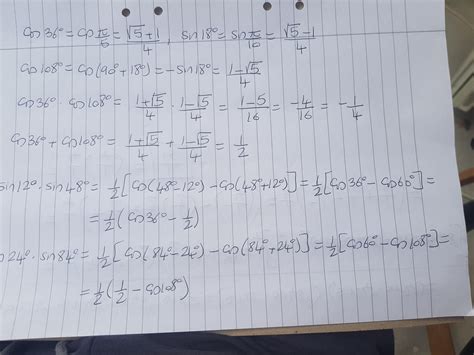 cos36° = cos π/5 = (√5+1)/4 , sin18° = sin π/10 = (√5-1)/4
cos108° = cos(90°+18°) = -sin18° = (1-√5)/4
cos36° · cos108° = (1+√5)/4 · (1-√5)/4 = (1-5)/16 = -4/16 = -1/4
cos36° + cos108° = (1+√5)/4 + (1-√5)/4 = 1/2
sin12° · sin48° = 1/2[cos(48°-12°) - cos(48°+12°)] = 1/2[cos36° - cos60°] =
= 1/2(cos36° - 1/2)
24° · sin84° = 1/2[cos(84°-24°) - cos(84°+24°)] = 1/2[cos60° - cos108°] =
= 1/2(1/2 - cos108°)